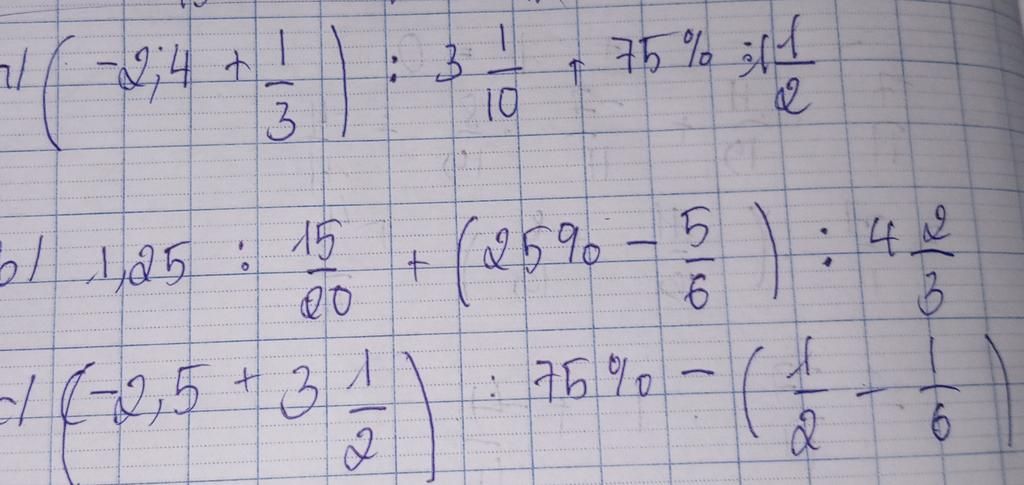 a/ (-2,4 + 1/3) : 3 1/10 + 75% : 1 1/2
b/ 1,25 : 15/20 + (25% - 5/6) : 4 2/3
c/ (-2,5 + 3 1/2) : 75% - (1/2 - 1/6)